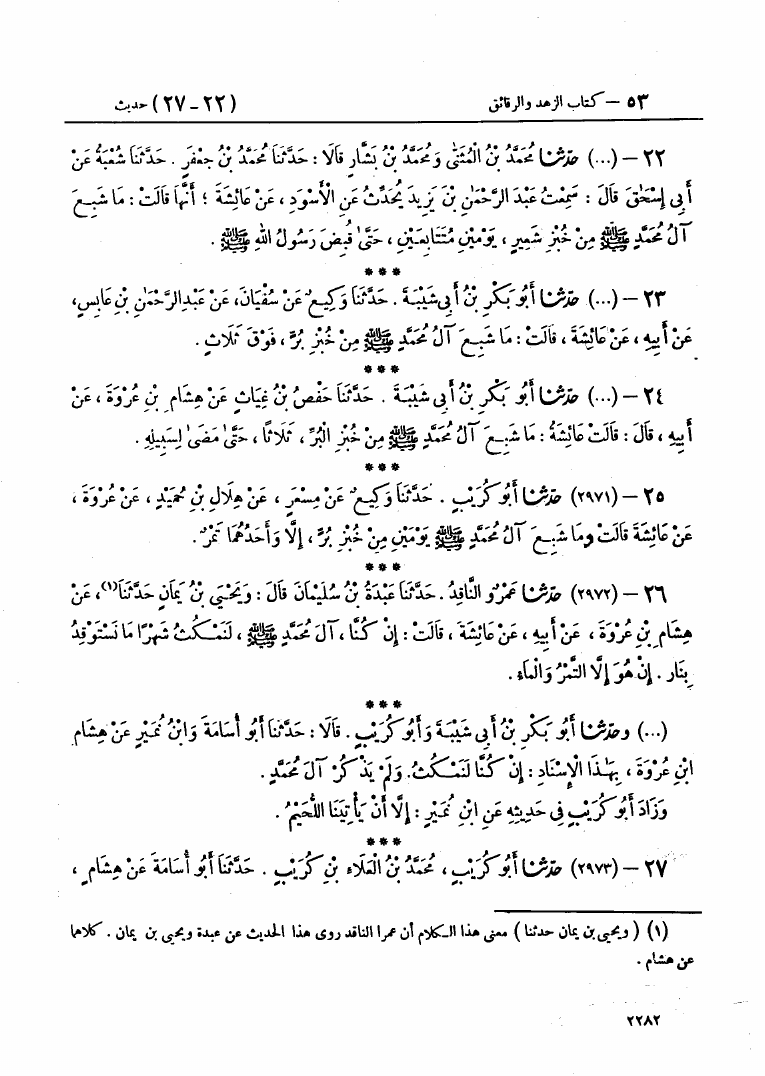 ٥٣ – كتاب الزهد والرقائق (٢٢ – ٢٧) حديث
٢٢ – (...) حَدَّثَنَا مُحَمَّدُ بْنُ الْمُثَنَّىٰ وَمُحَمَّدُ بْنُ بَشَّارٍ قَالَا : حَدَّثَنَا مُحَمَّدُ بْنُ جَعْفَرٍ . حَدَّثَنَا شُعْبَةُ عَنْ
أَبِي إِسْحَٰقَ قَالَ : سَمِعْتُ عَبْدَ الرَّحْمَٰنِ بْنَ يَزِيدَ يُحَدِّثُ عَنِ الْأَسْوَدِ ، عَنْ عَائِشَةَ ؛ أَنَّهَا قَالَتْ : مَا شَبِعَ
آلُ مُحَمَّدٍ ﷺ مِنْ خُبْزِ شَعِيرٍ ، يَوْمَيْنِ مُتَتَابِعَيْنِ ، حَتَّىٰ قُبِضَ رَسُولُ اللهِ ﷺ .
***
٢٣ – (...) حَدَّثَنَا أَبُو بَكْرِ بْنُ أَبِي شَيْبَةَ . حَدَّثَنَا وَكِيعٌ عَنْ سُفْيَانَ، عَنْ عَبْدِ الرَّحْمَٰنِ بْنِ عَابِسٍ،
عَنْ أَبِيهِ ، عَنْ عَائِشَةَ ، قَالَتْ : مَا شَبِعَ آلُ مُحَمَّدٍ ﷺ مِنْ خُبْزِ بُرٍّ ، فَوْقَ ثَلَاثٍ .
***
٢٤ – (...) حَدَّثَنَا أَبُو بَكْرِ بْنُ أَبِي شَيْبَةَ . حَدَّثَنَا حَفْصُ بْنُ غِيَاثٍ عَنْ هِشَامِ بْنِ عُرْوَةَ ، عَنْ
أَبِيهِ ، قَالَ : قَالَتْ عَائِشَةُ : مَا شَبِعَ آلُ مُحَمَّدٍ ﷺ مِنْ خُبْزِ الْبُرِّ ، ثَلَاثًا ، حَتَّىٰ مَضَىٰ لِسَبِيلِهِ .
***
٢٥ – (٢٩٧١) حَدَّثَنَا أَبُو كُرَيْبٍ . حَدَّثَنَا وَكِيعٌ عَنْ مِسْعَرٍ ، عَنْ هِلَالِ بْنِ حُمَيْدٍ ، عَنْ عُرْوَةَ ،
عَنْ عَائِشَةَ قَالَتْ : مَا شَبِعَ آلُ مُحَمَّدٍ ﷺ يَوْمَيْنِ مِنْ خُبْزِ بُرٍّ ، إِلَّا وَأَحَدُهُمَا تَمْرٌ .
***
٢٦ – (٢٩٧٢) حَدَّثَنَا عَمْرٌو النَّاقِدُ . حَدَّثَنَا عَبْدَةُ بْنُ سُلَيْمَانَ قَالَ : وَيَحْيَىٰ بْنُ يَمَانٍ حَدَّثَنَا(١)، عَنْ
هِشَامِ بْنِ عُرْوَةَ ، عَنْ أَبِيهِ ، عَنْ عَائِشَةَ ، قَالَتْ : إِنْ كُنَّا ، آلَ مُحَمَّدٍ ﷺ ، لَنَمْكُثُ شَهْرًا مَا نَسْتَوْقِدُ
بِنَارٍ . إِنْ هُوَ إِلَّا التَّمْرُ وَالْمَاءُ .
***
(...) وحَدَّثَنَا أَبُو بَكْرِ بْنُ أَبِي شَيْبَةَ وَأَبُو كُرَيْبٍ . قَالَا : حَدَّثَنَا أَبُو أُسَامَةَ وَابْنُ نُمَيْرٍ عَنْ هِشَامِ
ابْنِ عُرْوَةَ ، بِهَٰذَا الْإِسْنَادِ : إِنْ كُنَّا لَنَمْكُثُ. وَلَمْ يَذْكُرْ آلَ مُحَمَّدٍ .
وَزَادَ أَبُو كُرَيْبٍ فِي حَدِيثِهِ عَنِ ابْنِ نُمَيْرٍ : إِلَّا أَنْ يَأْتِيَنَا اللُّحَيْمُ .
***
٢٧ – (٢٩٧٣) حَدَّثَنَا أَبُو كُرَيْبٍ ، مُحَمَّدُ بْنُ الْعَلَاءِ بْنِ كُرَيْبٍ . حَدَّثَنَا أَبُو أُسَامَةَ عَنْ هِشَامٍ ،
(١) ( ويحيى بن يمان حدثنا ) معنى هذا الكلام أن عمرا الناقد روى هذا الحديث عن عبدة ويحيى بن يمان . كلاهما
عن هشام .
٢٢٨٢